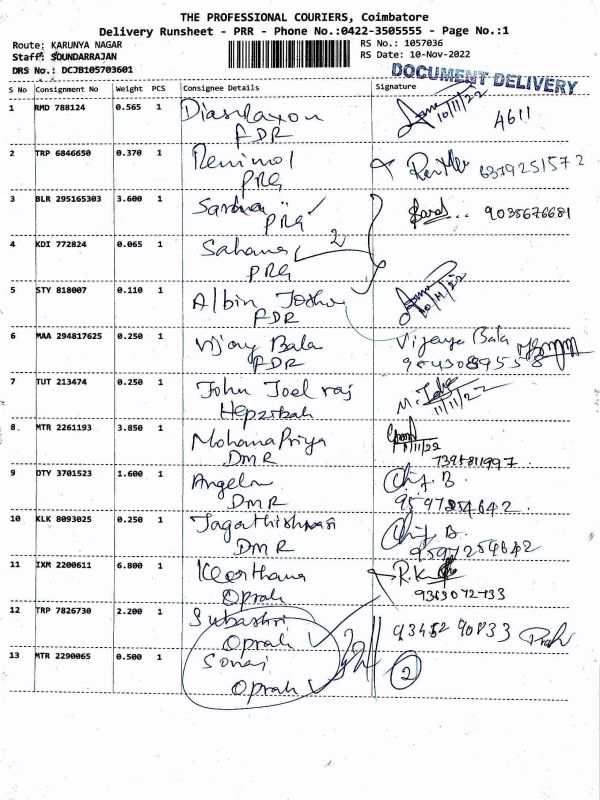 THE PROFESSIONAL COURIERS, Coimbatore
Delivery Runsheet - PRR - Phone No.:0422-3505555 - Page No.:1
Route: KARUNYA NAGAR
RS No.: 1057036
Staff: SOUNDARRAJAN
RS Date: 10-Nov-2022
DRS No.: DCJB105703601
DOCUMENT DELIVERY
S No Consignment No Weight PCS Consignee Details Signature
1 RMD 788124 0.565 1
10/11/22 4611
FDR
2 TRP 6846650 0.370 1 Renimol
6379251572
PRG
3 BLR 295165303 3.600 1
9035676681
PRG
4 KDI 772824 0.065 1 Sahana 2
PRG
5 STY 818007 0.110 1 Albin
10/11/22
FDR
6 MAA 294817625 0.250 1 Vijay Bala Vijaya Bala
FDR
7 TUT 213474 0.250 1 John Joel raj
11/11/22
8. MTR 2261193 3.850 1
Mohana Priya
DMR 7395811997
9 DTY 3701523 1.600 1 Angela
DMR
10 KLK 8093025 0.250 1
DMR 9597254642
11 IXM 2200611 6.800 1 Keerthana R.K
Oprah
12 TRP 7826730 2.200 1 Subashri
Oprah
13 MTR 2290065 0.500 1 2
Oprah